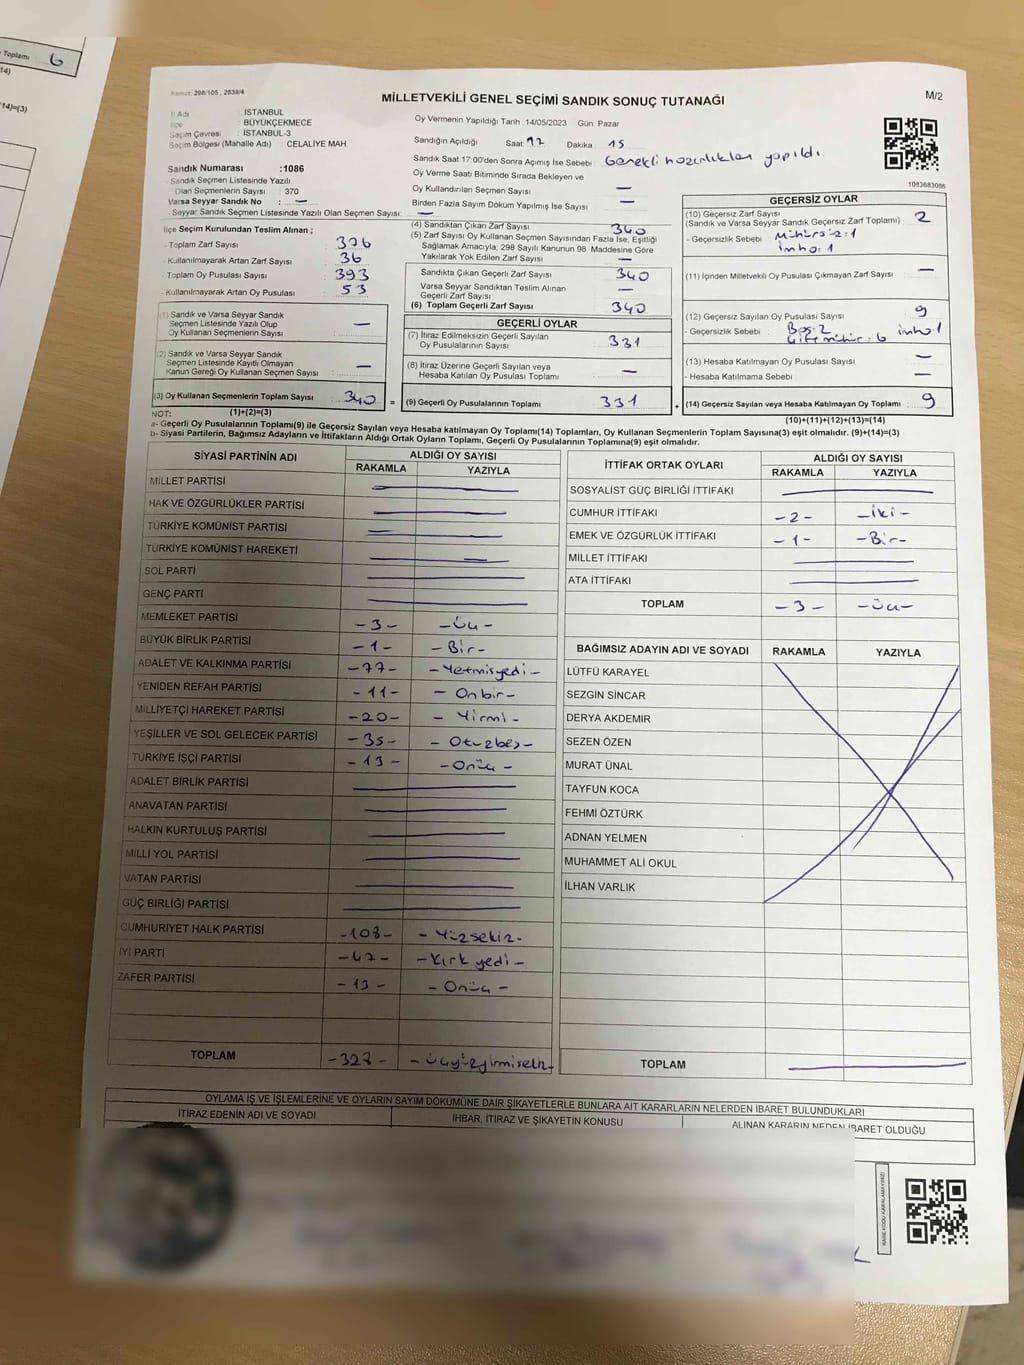 Toplamı 6
14)
14)=(3)
Kanun: 298/105 , 2839/4
MİLLETVEKİLİ GENEL SEÇİMİ SANDIK SONUÇ TUTANAĞI
M/2
İl Adı : İSTANBUL
İlçe : BÜYÜKÇEKMECE
Seçim Çevresi : İSTANBUL-3
Seçim Bölgesi (Mahalle Adı) : CELALİYE MAH
Oy Vermenin Yapıldığı Tarih :14/05/2023 Gün: Pazar
Sandığın Açıldığı Saat: 17 Dakika 15
Sandık Saat 17:00'den Sonra Açmış İse Sebebi : Gerekli hazırlıkları yapıldı.
Oy Verme Saati Bitiminde Sırada Bekleyen ve
Oy Kullandırılan Seçmen Sayısı —
Birden Fazla Sayım Döküm Yapılmış İse Sayısı —
1083683086
Sandık Numarası :1086
- Sandık Seçmen Listesinde Yazılı
Olan Seçmenlerin Sayısı : 370
Varsa Seyyar Sandık No : —
- Seyyar Sandık Seçmen Listesinde Yazılı Olan Seçmen Sayısı: —
İlçe Seçim Kurulundan Teslim Alınan ;
- Toplam Zarf Sayısı 376
- Kullanılmayarak Artan Zarf Sayısı 36
- Toplam Oy Pusulası Sayısı 393
- Kullanılmayarak Artan Oy Pusulası 53
(1) Sandık ve Varsa Seyyar Sandık
Seçmen Listesinde Yazılı Olup
Oy Kullanan Seçmenlerin Sayısı —
(2) Sandık ve Varsa Seyyar Sandık
Seçmen Listesinde Kayıtlı Olmayan
Kanun Gereği Oy Kullanan Seçmen Sayısı —
(3) Oy Kullanan Seçmenlerin Toplam Sayısı 340 =
(1)+(2)=(3)
(4) Sandıktan Çıkan Zarf Sayısı 340
(5) Zarf Sayısı Oy Kullanan Seçmen Sayısından Fazla İse, Eşitliği
Sağlamak Amacıyla; 298 Sayılı Kanunun 98. Maddesine Göre
Yakılarak Yok Edilen Zarf Sayısı —
Sandıkta Çıkan Geçerli Zarf Sayısı 340
Varsa Seyyar Sandıktan Teslim Alınan
Geçerli Zarf Sayısı —
(6) Toplam Geçerli Zarf Sayısı 340
GEÇERLİ OYLAR
(7) İtiraz Edilmeksizin Geçerli Sayılan
Oy Pusulalarının Sayısı 331
(8) İtiraz Üzerine Geçerli Sayılan veya
Hesaba Katılan Oy Pusulası Toplamı —
(9) Geçerli Oy Pusulalarının Toplamı 331 +
GEÇERSİZ OYLAR
(10) Geçersiz Zarf Sayısı 2
(Sandık ve Varsa Seyyar Sandık Geçersiz Zarf Toplamı)
- Geçersizlik Sebebi Mühürsüz:1
imha:1
(11) İçinden Milletvekili Oy Pusulası Çıkmayan Zarf Sayısı —
(12) Geçersiz Sayılan Oy Pusulası Sayısı 9
- Geçersizlik Sebebi : Boş:2 imha:1
mühür:6
(13) Hesaba Katılmayan Oy Pusulası Sayısı —
- Hesaba Katılmama Sebebi —
(14) Geçersiz Sayılan veya Hesaba Katılmayan Oy Toplamı : 9
(10)+(11)+(12)+(13)=(14)
NOT:
a- Geçerli Oy Pusulalarının Toplamı(9) ile Geçersiz Sayılan veya Hesaba katılmayan Oy Toplamı(14) Toplamları, Oy Kullanan Seçmenlerin Toplam Sayısına(3) eşit olmalıdır. (9)+(14)=(3)
b- Siyasi Partilerin, Bağımsız Adayların ve İttifakların Aldığı Ortak Oyların Toplamı, Geçerli Oy Pusulalarının Toplamına(9) eşit olmalıdır.
SİYASİ PARTİNİN ADI ALDIĞI OY SAYISI
RAKAMLA YAZIYLA
MİLLET PARTİSİ
HAK VE ÖZGÜRLÜKLER PARTİSİ
TÜRKİYE KOMÜNİST PARTİSİ
TÜRKİYE KOMÜNİST HAREKETİ
SOL PARTİ
GENÇ PARTİ
MEMLEKET PARTİSİ -3- -Üç-
BÜYÜK BİRLİK PARTİSİ -1- -Bir-
ADALET VE KALKINMA PARTİSİ -77- -Yetmişyedi-
YENİDEN REFAH PARTİSİ -11- -Onbir-
MİLLİYETÇİ HAREKET PARTİSİ -20- -Yirmi-
YEŞİLLER VE SOL GELECEK PARTİSİ -35- -Otuzbeş-
TÜRKİYE İŞÇİ PARTİSİ -13- -Onüç-
ADALET BİRLİK PARTİSİ
ANAVATAN PARTİSİ
HALKIN KURTULUŞ PARTİSİ
MİLLİ YOL PARTİSİ
VATAN PARTİSİ
GÜÇ BİRLİĞİ PARTİSİ
CUMHURİYET HALK PARTİSİ -108- -Yüzsekiz-
İYİ PARTİ -47- -Kırkyedi-
ZAFER PARTİSİ -13- -Onüç-
TOPLAM -328- -üçyüzyirmisekiz-
İTTİFAK ORTAK OYLARI ALDIĞI OY SAYISI
RAKAMLA YAZIYLA
SOSYALİST GÜÇ BİRLİĞİ İTTİFAKI
CUMHUR İTTİFAKI -2- -İki-
EMEK VE ÖZGÜRLÜK İTTİFAKI -1- -Bir-
MİLLET İTTİFAKI
ATA İTTİFAKI
TOPLAM -3- -Üç-
BAĞIMSIZ ADAYIN ADI VE SOYADI RAKAMLA YAZIYLA
LÜTFÜ KARAYEL
SEZGİN SİNCAR
DERYA AKDEMİR
SEZEN ÖZEN
MURAT ÜNAL
TAYFUN KOCA
FEHMİ ÖZTÜRK
ADNAN YELMEN
MUHAMMET ALİ OKUL
İLHAN VARLIK
TOPLAM
OYLAMA İŞ VE İŞLEMLERİNE VE OYLARIN SAYIM DÖKÜMÜNE DAİR ŞİKAYETLERLE BUNLARA AİT KARARLARIN NELERDEN İBARET BULUNDUKLARI
İTİRAZ EDENİN ADI VE SOYADI İHBAR, İTİRAZ VE ŞİKAYETİN KONUSU ALINAN KARARIN NEDEN İBARET OLDUĞU